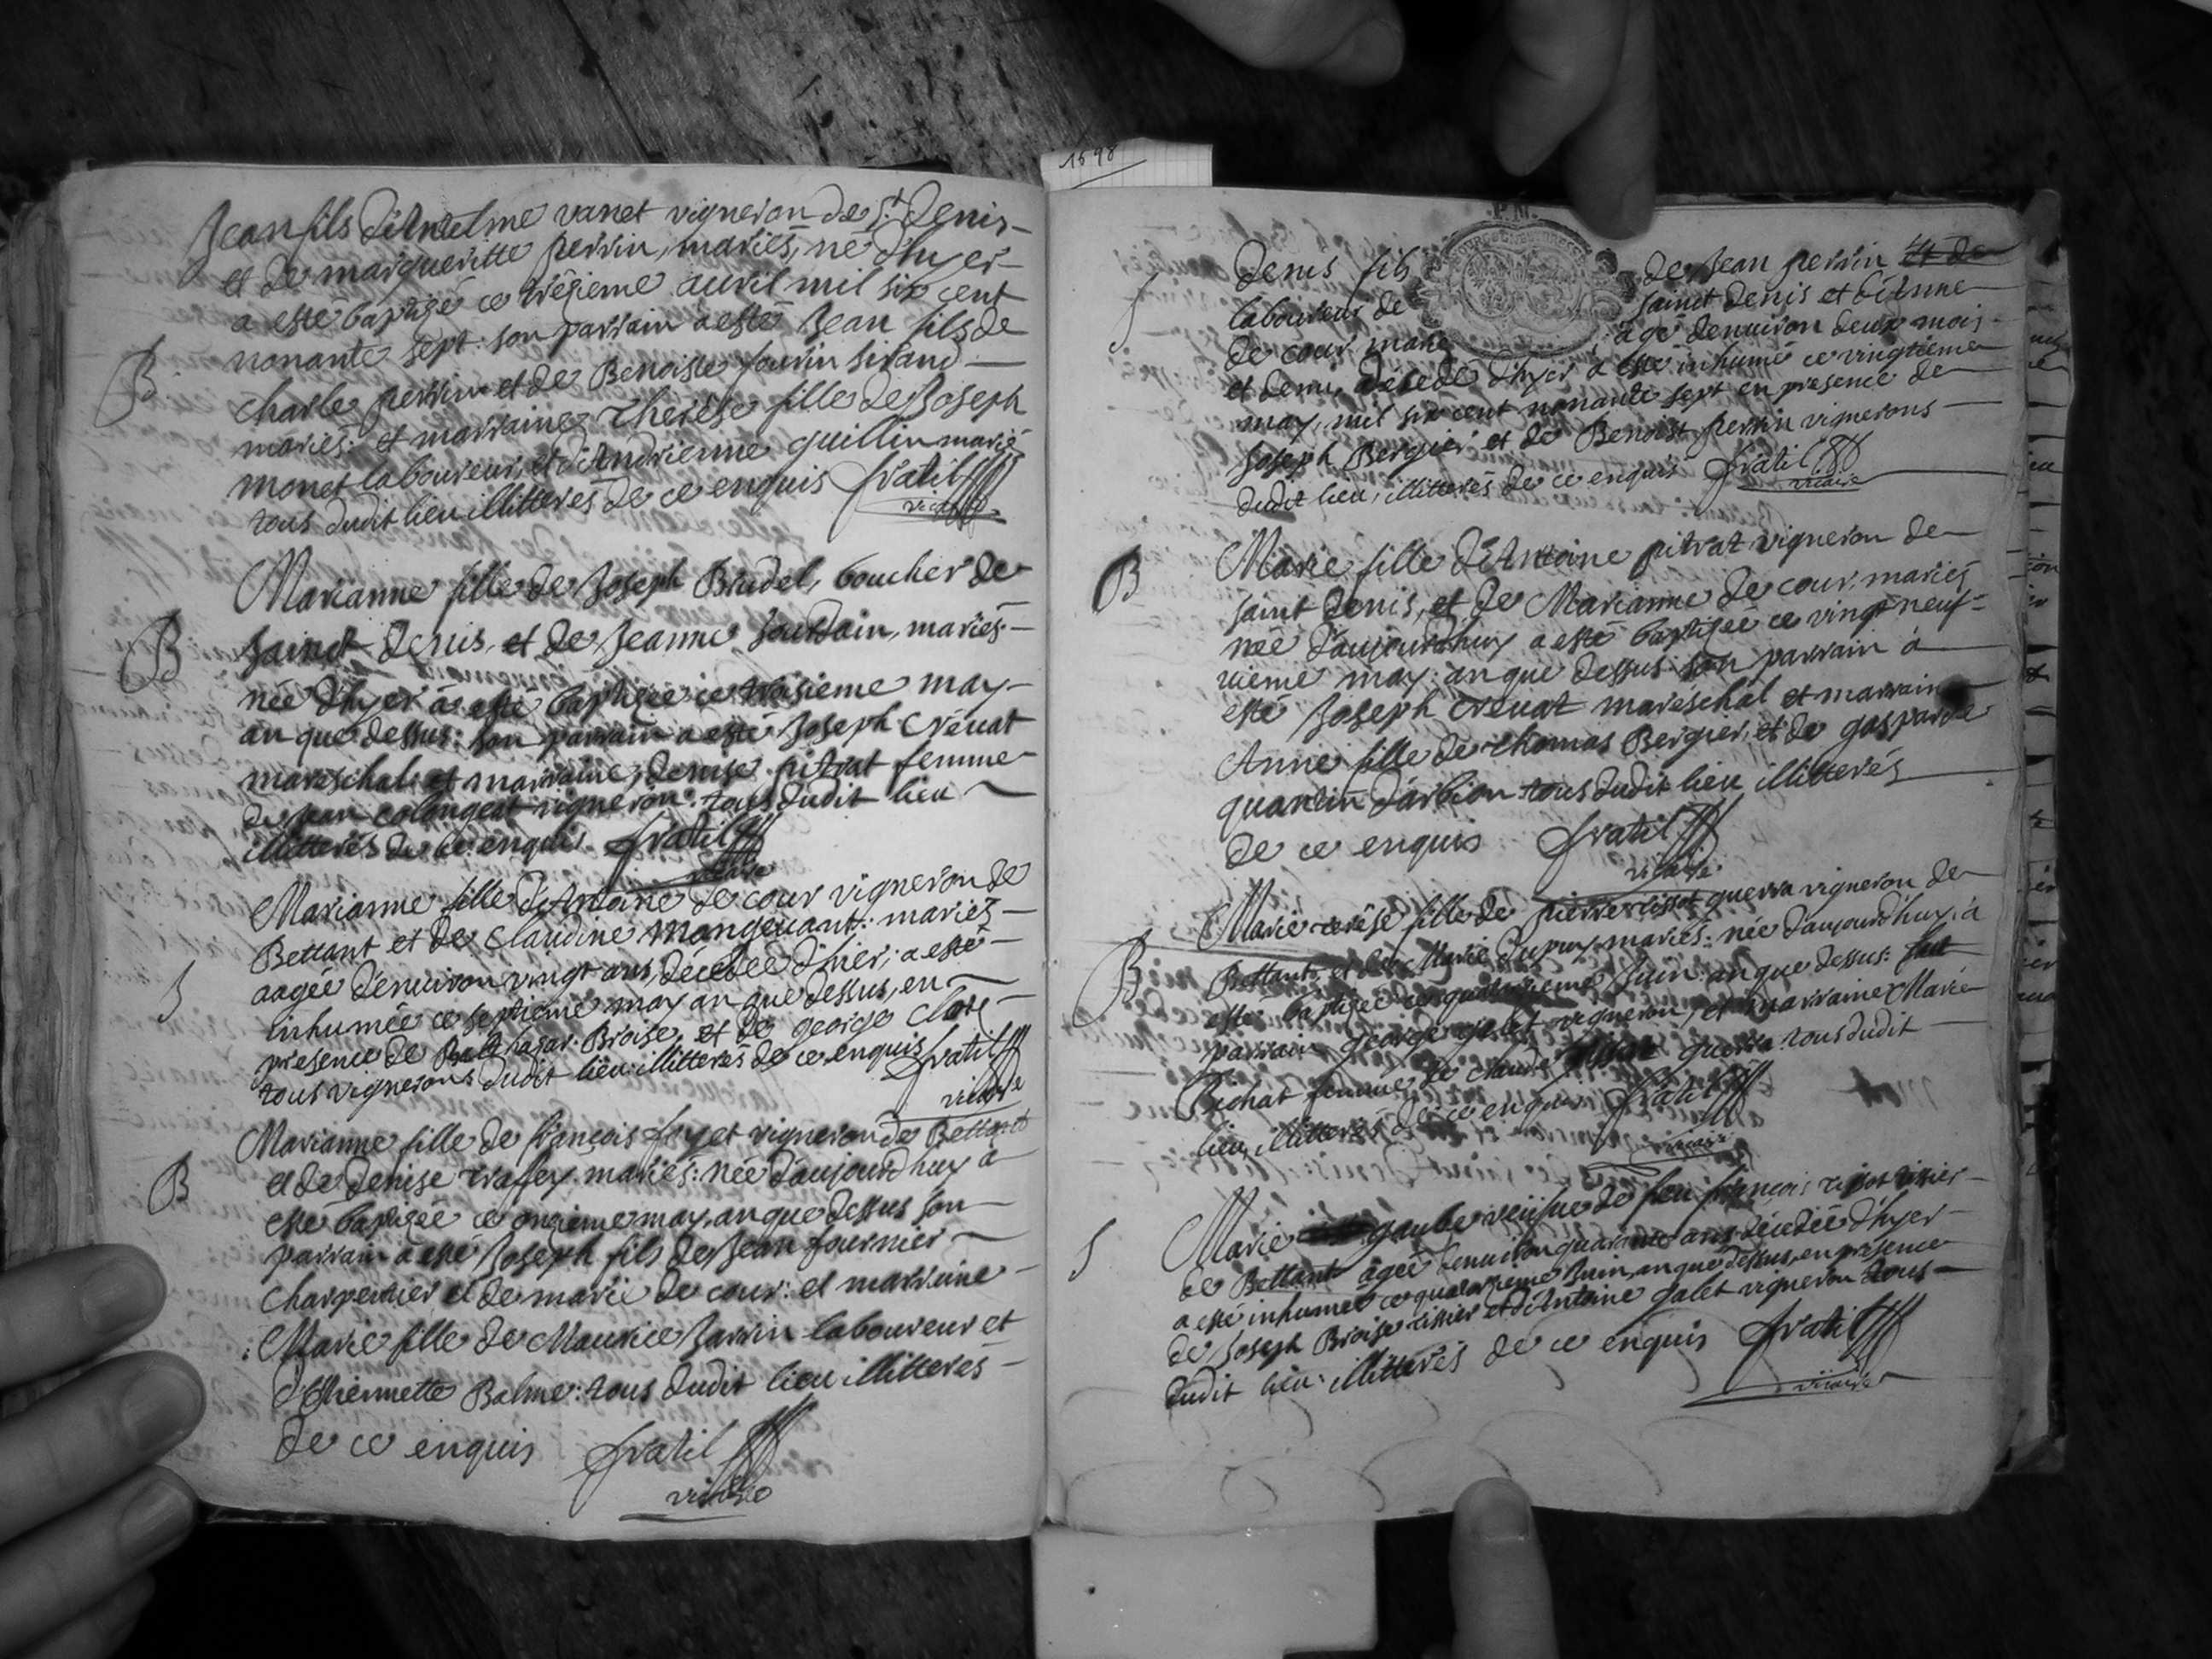 1698
Jean fils d'Antelme vanet vigneron de St Denis
et de margueritte perrin, mariés, né d'hyer
a esté baptizé ce trézieme auril mil six cent
nonante sept. son parrain a esté Jean fils de
B charle perrin et de Benoiste jourin sirand
mariés: et marraine Therése fille de Joseph
monet laboureur, et d'Andrienne guillin mariés
tous dudit lieu illitterés de ce enquis fratil
vicaire
Marianne fille de Joseph Brudel, boucher de
B sainct Denis, et de Jeanne Jourdain, mariés
née d'hyer a esté baptizée ce troisieme may
an que dessus: son parrain a esté Joseph Créuat
mareschal: et marraine, denise pitrat femme
de Jean colongeat vigneron: tous dudit lieu
illitterés de ce enquis fratil
vicaire
Marianne fille d'Antoine de cour vigneron de
Bettant et de Claudine mangeuant: mariés
S aagée d'enuiron vingt ans, décédée d'hier, a esté
inhumée ce septieme may an que dessus, en
presence de Balthazar Broise, et de george Clore
tous vignerons dudit lieu illitterés de ce enquis fratil
vicaire
Marianne fille de françois foyet vigneron de Bettant
B et de Denise traffey mariés: née d'aujourd'huy a
esté baptizée ce onzieme may, an que dessus son
parrain a esté Joseph fils de Jean fournier
charpentier et de marie de cour: et marraine
Marie fille de Maurice Jarrin laboureur et
d'Ethiennette Balme: tous dudit lieu illitterés
de ce enquis fratil
vicaire
P.M.
Denis fils de Jean perrin et de
S laboureur de sainct Denis et
de cour, mariés agé denuiron deux mois
et demi, décédé d'hyer a esté inhumé ce vingtieme
may, mil six cent nonante sept en presence de
Joseph Bergier et de Benoist perrin vignerons
dudit lieu, illitterés de ce enquis fratil
vicaire
B Marie fille d'Antoine pitrat vigneron de
saint Denis, et de Marianne de cour, mariés
née d'aujourdhuy a esté baptizée ce vingt neuf
uieme may: an que dessus: son parrain a
esté Joseph creuat maréschal et marraine
Anne fille de thomas Bergier, et de gasparde
quantin d'arbion tous dudit lieu illitterés
de ce enquis fratil
vicaire
Marie terése fille de pierre tissot guerra vigneron de
B Bettant, et de Marie Dupuy mariés: née d'aujourd'huy, a
esté baptizée ce juin: an que dessus: fut
parrain george galet vigneron, et marraine Marie
Bichat femme de claude guerra: tous dudit
lieu, illitterés de ce enquis fratil
vicaire
S Marie gaube veüfue de feu françois tissot tissier
de Bettant agée denuiron quarante ans décédée d'hyer
a esté inhumée ce quatorzieme Juin, an que dessus, en presence
de Joseph Broise tissier et d'Antoine galet vigneron tous
dudit lieu: illitterés de ce enquis fratil
vicaire